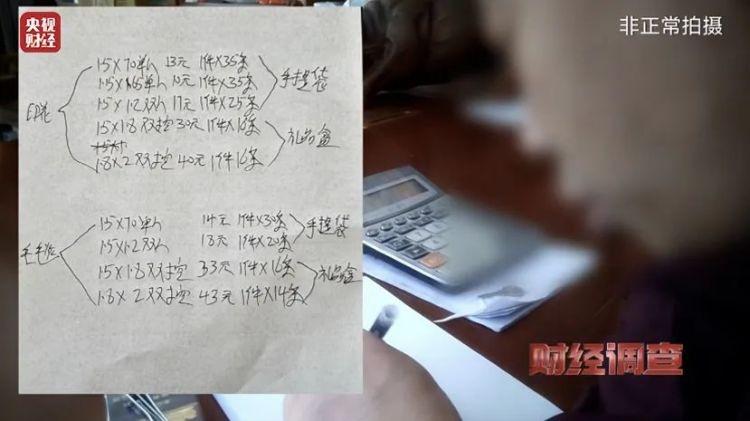 央视
财经
非正常拍摄
15×70单人 13元 1件×35条
15×1.2双人 17元 1件×25条
手提袋
印花
15×1.8双控 30元 1件×16条
礼品盒
1.8×2双控 40元 1件16条
15×70单人 14元 1件×30条
手提袋
15×1.2双人 18元 1件×20条
15×1.8双控 33元 1件×16条
礼品盒
1.8×2双控 43元 1件×14条
财经调查